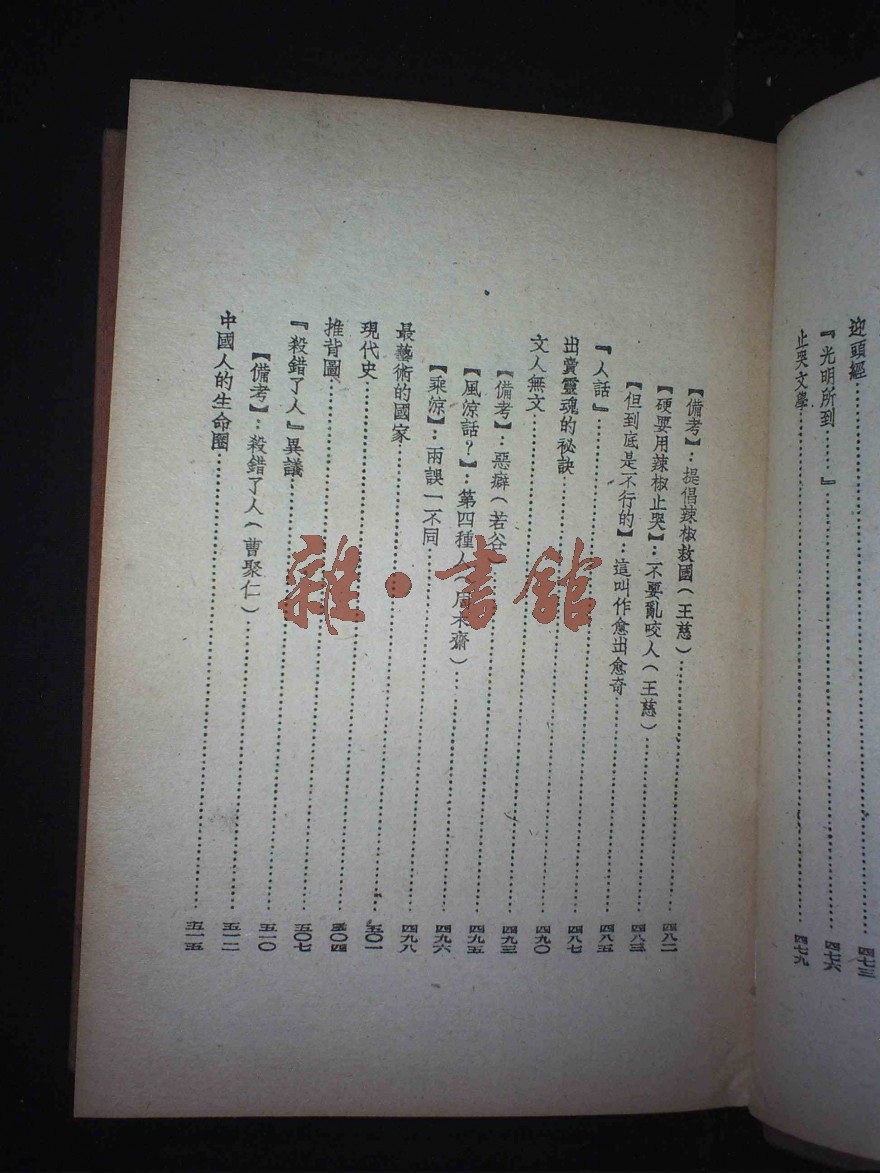 迎頭經……四七三
『光明所到……』……四七六
止哭文學……四七九
【備考】：提倡辣椒救國（王慈）……四八二
【硬要用辣椒止哭】：不要亂咬人（王慈）……四八三
【但到底是不行的】：這叫作愈出愈奇……四八三
『人話』……四八五
出賣靈魂的秘訣……四八七
文人無文……四九〇
【備考】：惡癖（若谷）……四九三
【風涼話？】：第四種人（周木齋）……四九五
【乘涼】：兩誤一不同……四九六
最藝術的國家……四九八
現代史……五〇一
推背圖……五〇四
『殺錯了人』異議……五〇七
【備考】：殺錯了人（曹聚仁）……五一〇
中國人的生命圈……五一二
五一五
雜·書館